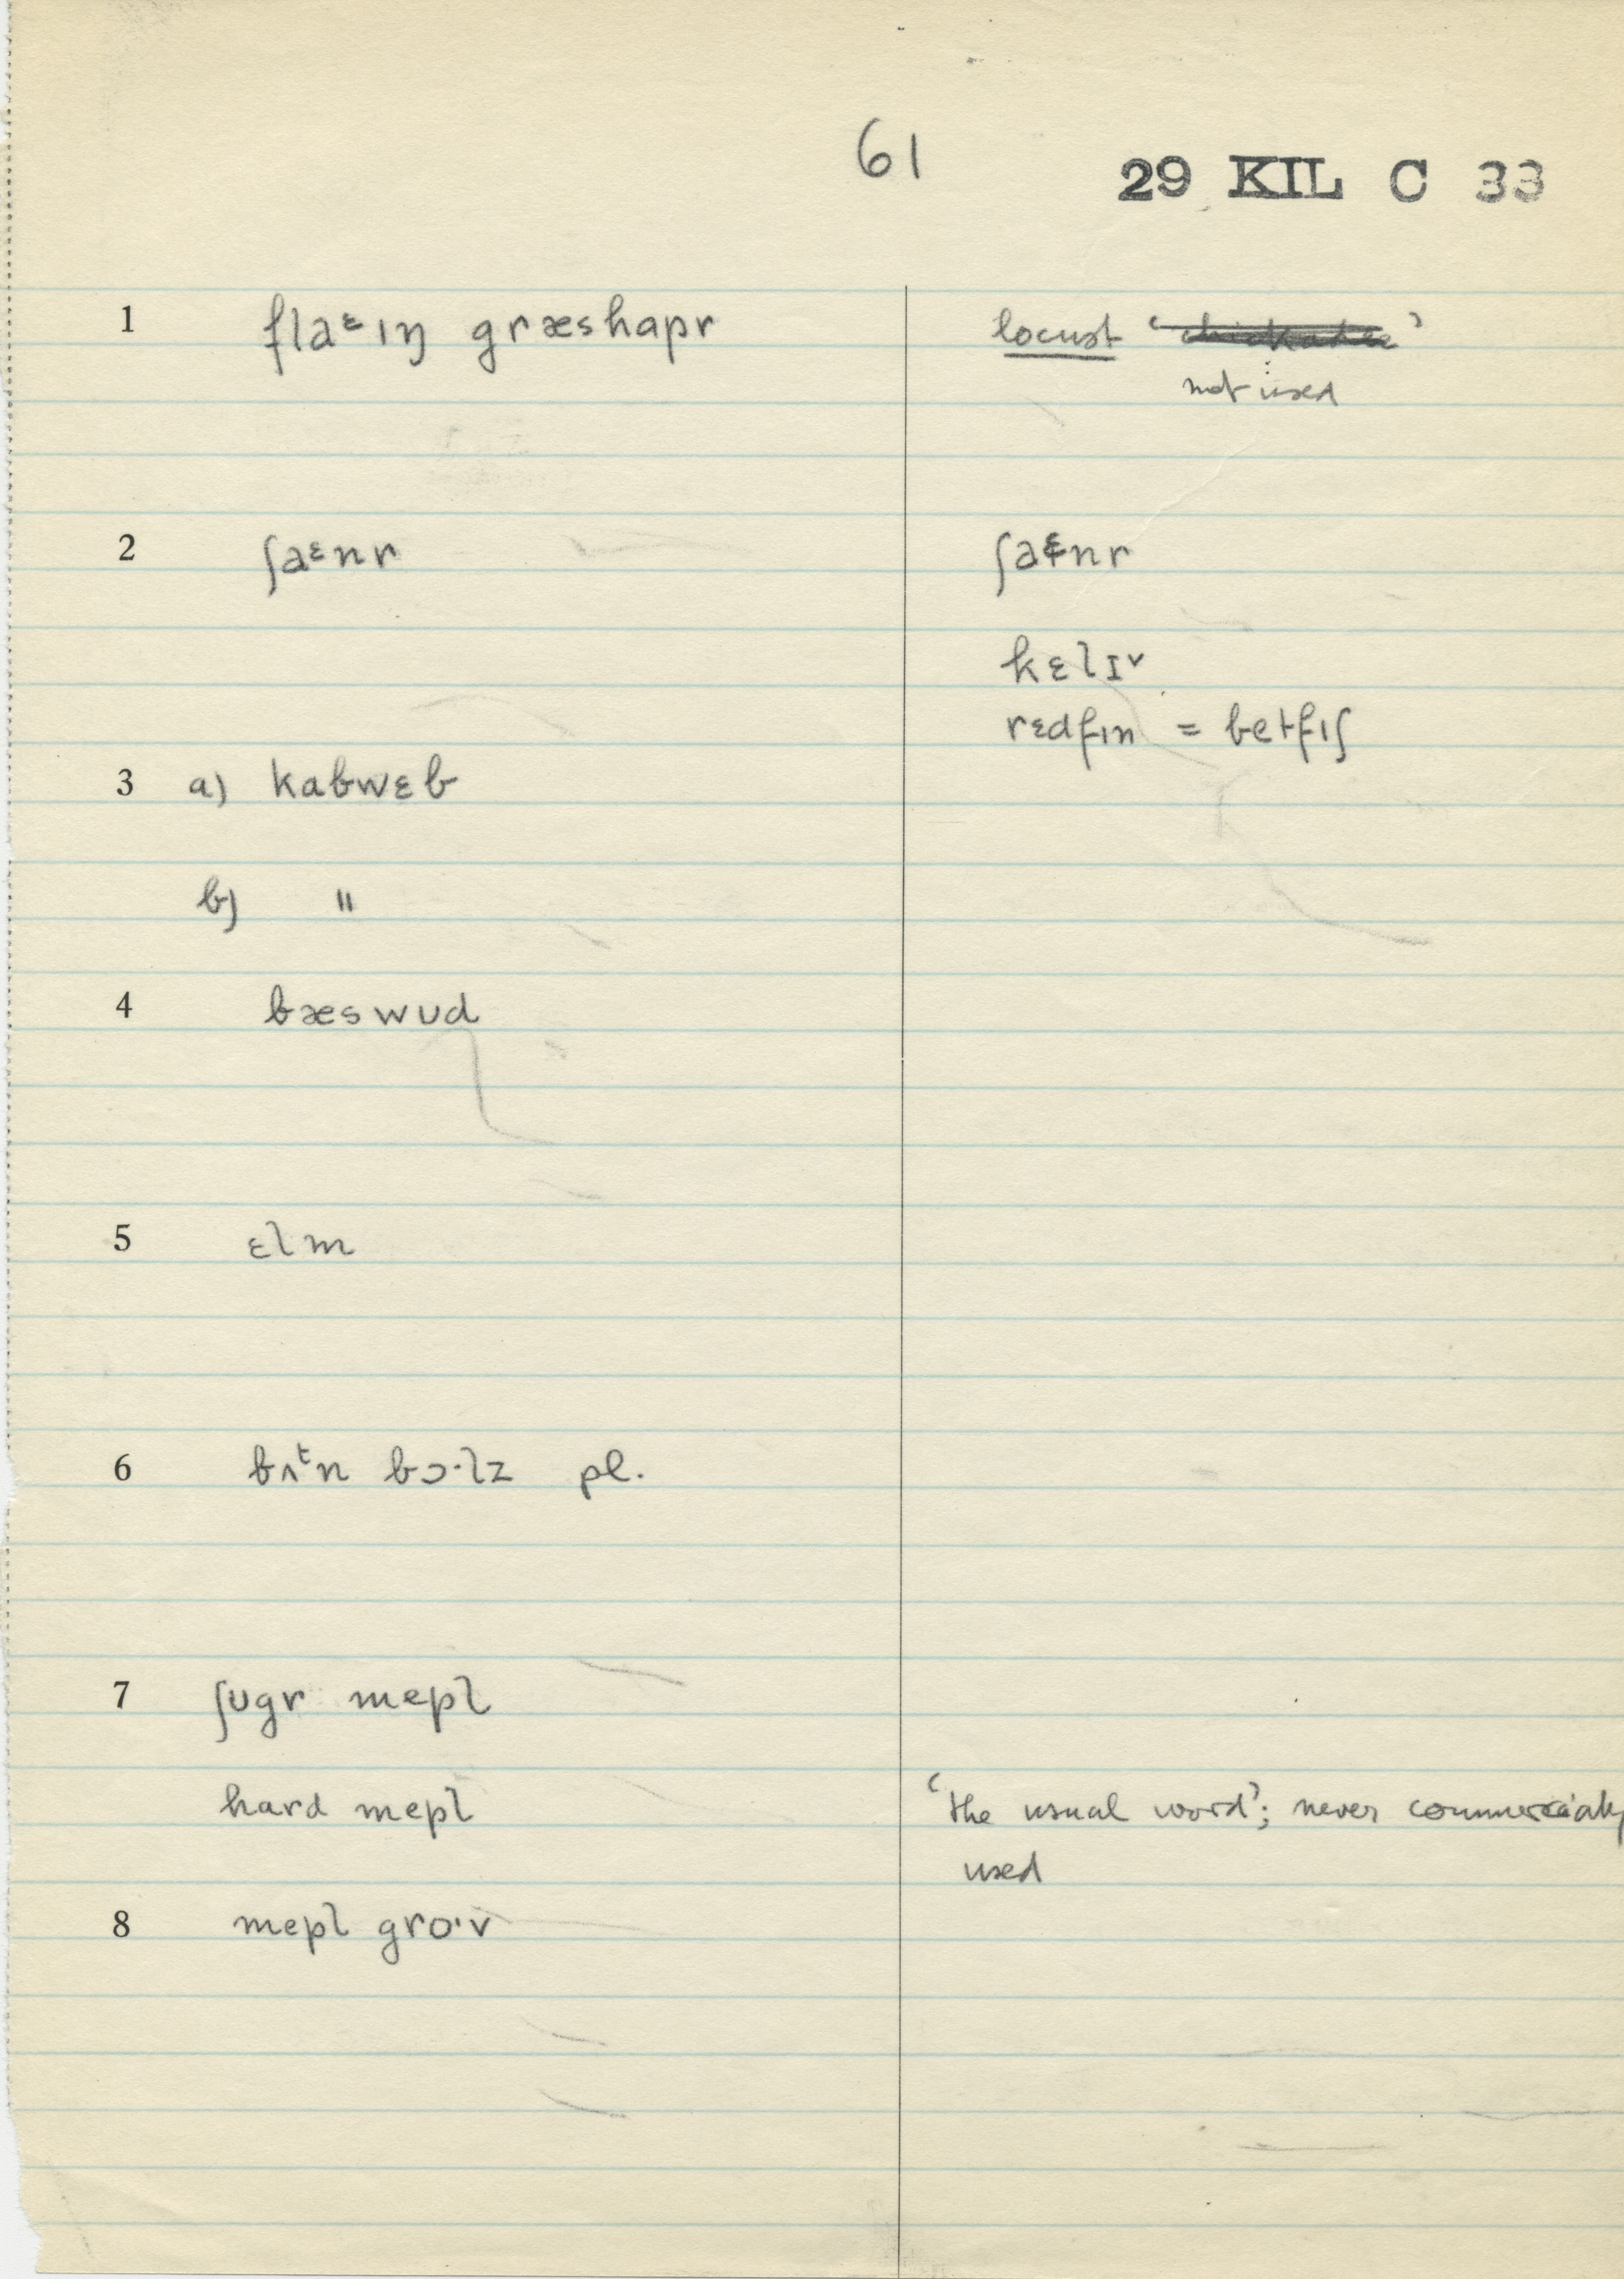 61
29 KIL C 33
1 flaᵋɪŋ græshapr locust ‘ ’
not used
2 ʃaᵋnr ʃaᵋnr
kɛlɪᵛ
rɛdfɪn = betfɪʃ
3 a) kabwɛb
b) "
4 bæswʊd
5 ɛlm
6 bʌᵗn bɔ·lz pl.
7 ʃʊgr mepl
hard mepl ‘the usual word’; never commercially
used
8 mepl gro·v